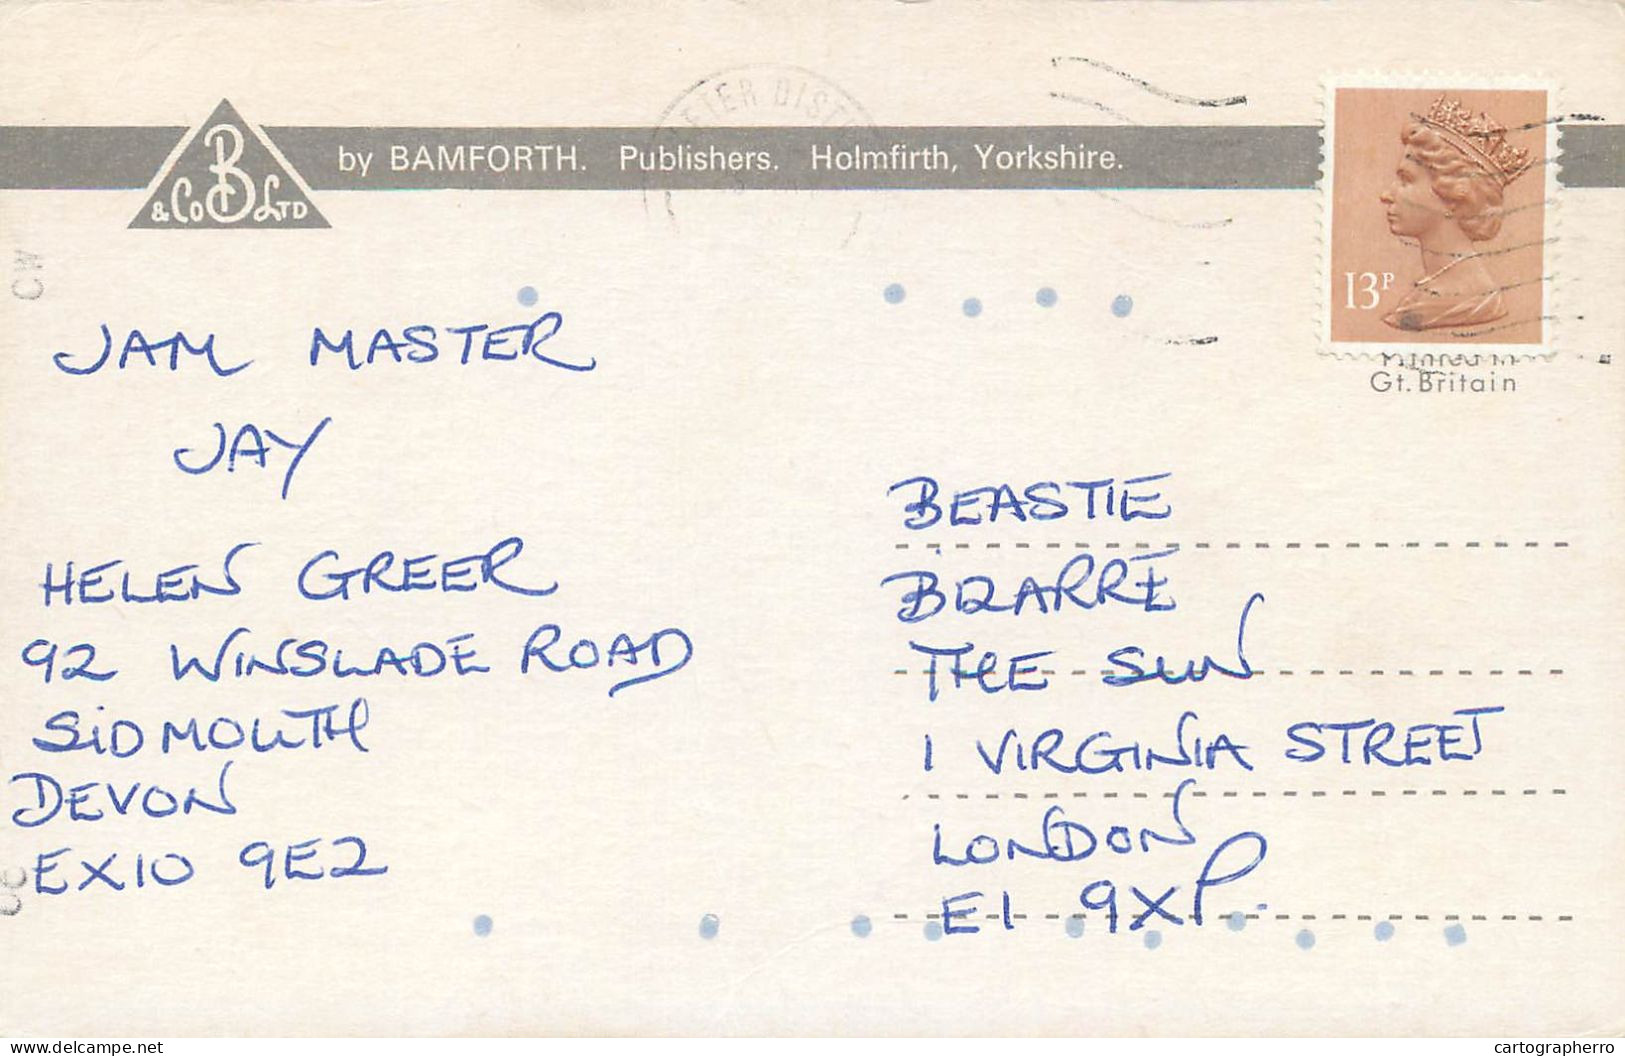 B
& Co LTD
by BAMFORTH. Publishers. Holmfirth, Yorkshire.
DIST
13P
Gt. Britain
CW
JAM MASTER
JAY
HELEN GREER
92 WINSLADE ROAD
SIDMOUTH
DEVON
EX10 9EZ
BEASTIE
BIZARRE
THE SUN
1 VIRGINIA STREET
LONDON
E1 9XP.
www.delcampe.net
cartographerro